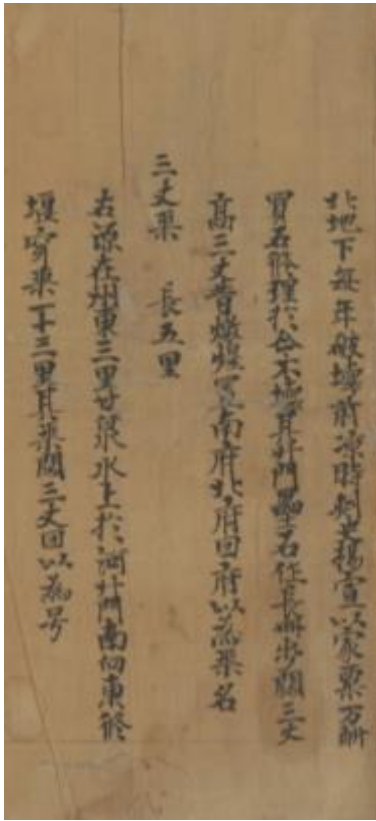 此地下每年破壞前涼時刺史楊宣以家粟万斛
買石脩理於今不壞其斗門壘石作長卌步闊三丈
高三丈昔燉煌置南府北府因府以為渠名
三丈渠　長五里
右源在州東三里甘泉水上於河斗門南向東脩
堰穿渠一十三里其渠闊三丈因以為号